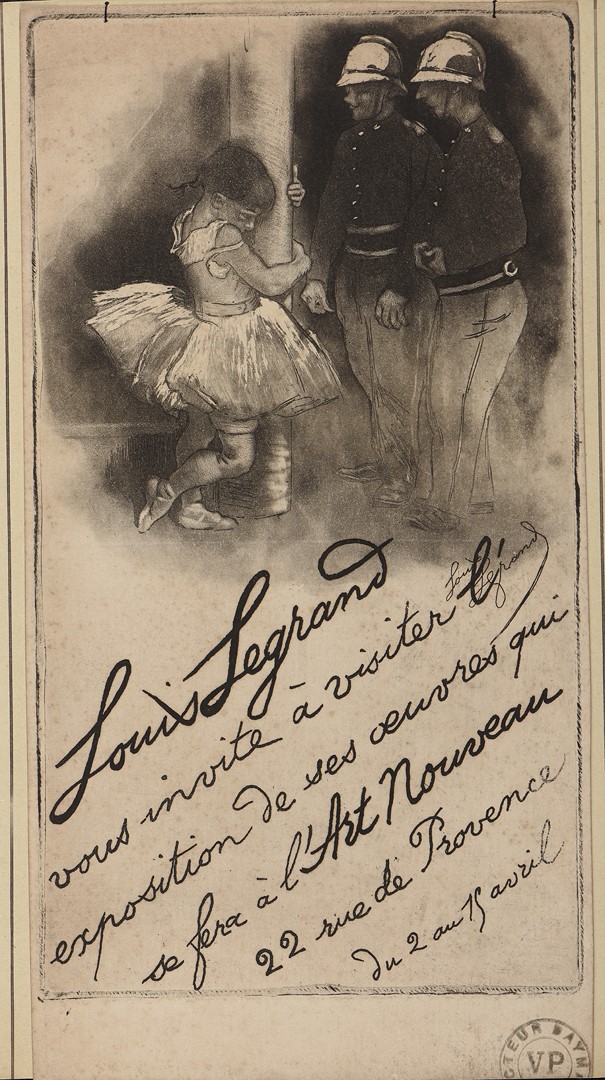 Louis Legrand
Louis Legrand
vous invite à visiter l'
exposition de ses œuvres qui
se fera à l'Art Nouveau
22 rue de Provence
du 2 au 15 avril
VP